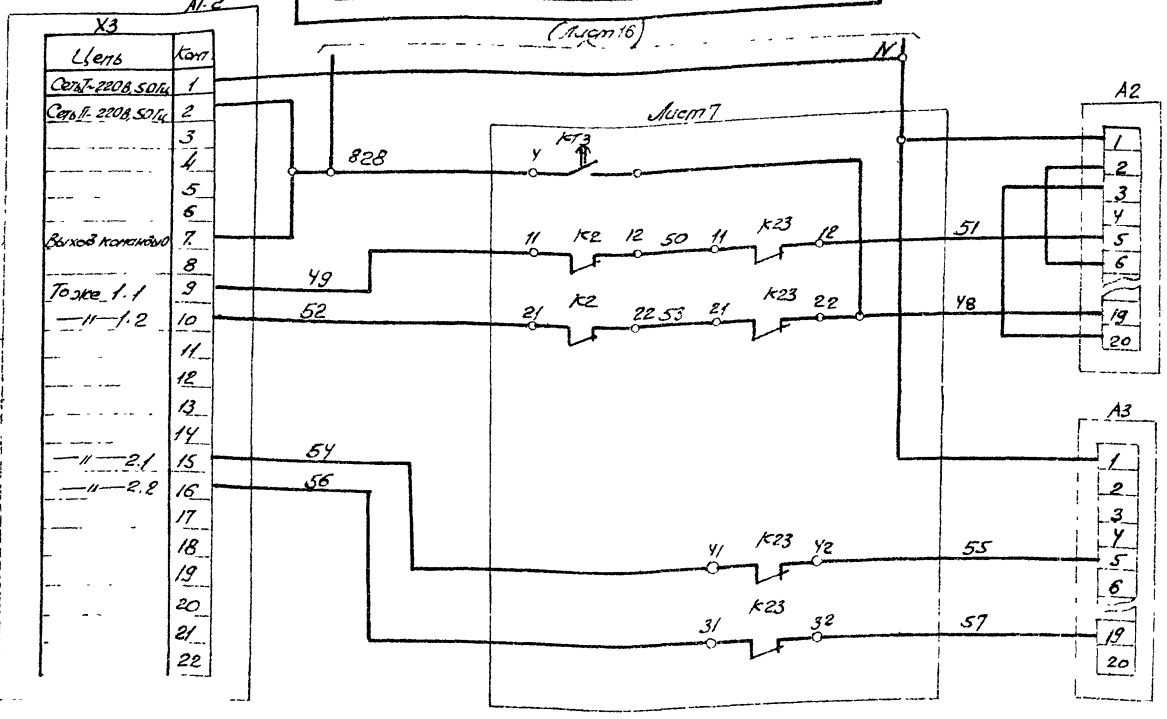 А1.2
(Лист 16)
Х3
Цепь Конт
Сеть I-220В, 50Гц 1
Сеть II-220В, 50Гц 2
3
4
5
6
Выход команды 7
8
То же 1.1 9
—〃— 1.2 10
11
12
13
14
—〃— 2.1 15
—〃— 2.2 16
17
18
19
20
21
22
N
Лист 7
828 4 КТ3
49 11 К2 12 50 11 К23 12 51
52 21 К2 22 53 21 К23 22 48
54 41 К23 42 55
56 31 К23 32 57
А2
1
2
3
4
5
6
19
20
А3
1
2
3
4
5
6
19
20